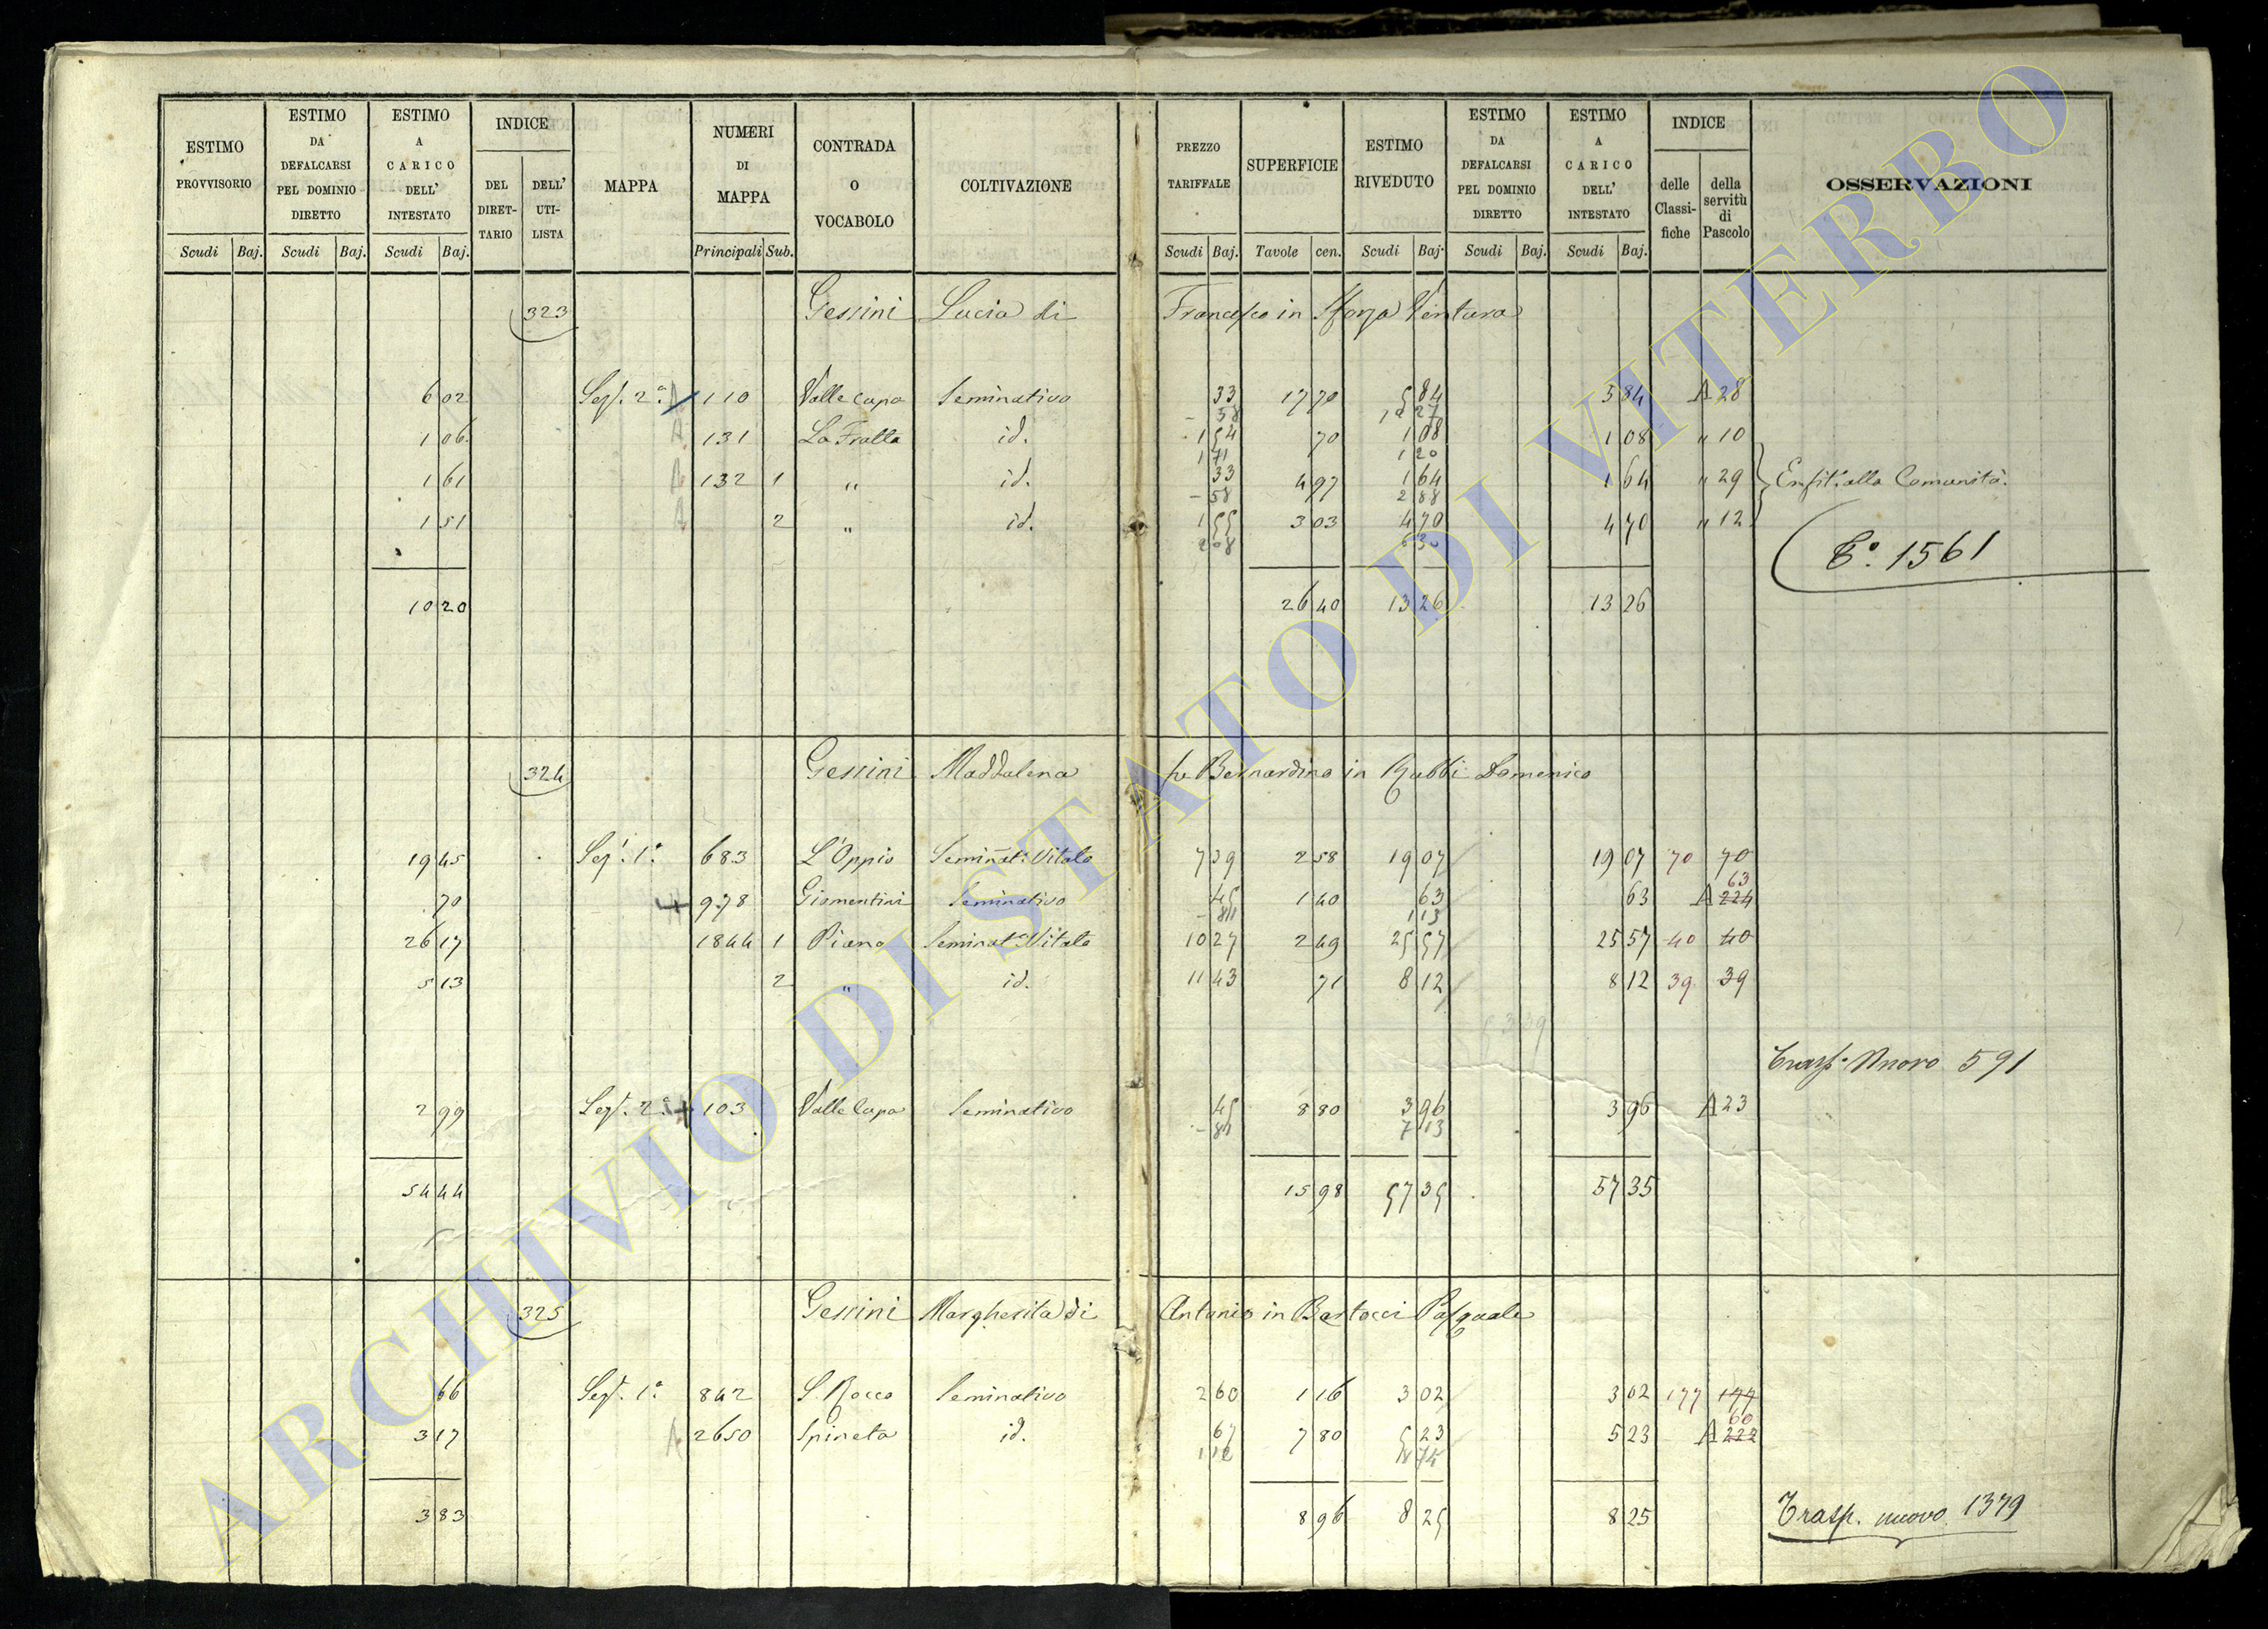 ESTIMO PROVVISORIO
ESTIMO DA DEFALCARSI PEL DOMINIO DIRETTO
ESTIMO A CARICO DELL' INTESTATO
INDICE
DEL DIRET-TARIO
DELL' UTI-LISTA
MAPPA
NUMERI DI MAPPA
CONTRADA O VOCABOLO
COLTIVAZIONE
PREZZO TARIFFALE
SUPERFICIE
ESTIMO RIVEDUTO
ESTIMO DA DEFALCARSI PEL DOMINIO DIRETTO
ESTIMO A CARICO DELL' INTESTATO
INDICE
delle Classi-fiche
della servitù di Pascolo
OSSERVAZIONI
Scudi Baj. Scudi Baj. Scudi Baj. Principali Sub. Scudi Baj. Tavole cen. Scudi Baj. Scudi Baj. Scudi Baj.
323 Gessini Lucia di Francesco in Sforza Ventura
6 02 Sez. 2ª A 110 Valle Cupa Seminativo 33 17 70 5 84 5 84 A 28
- 58 10 27
1 06 A 131 La Fratta id. 1 54 70 1 08 1 08 " 10
1 71 1 20
1 61 A 132 1 " id. 33 4 97 1 64 1 64 " 29 Enfit. alla Comunità
- 58 2 88
1 51 A 2 " id. 1 55 3 03 4 70 4 70 " 12
2 08 6 30
Tº. 1561
10 20 26 40 13 26 13 26
324 Gessini Maddalena fu Bernardino in Rubbi Domenico
19 45 Sez. 1ª 683 L'Oppio Seminat. Vitato 7 39 2 58 19 07 19 07 70 70
70 + 978 Gismentini Seminativo 45 1 40 63 63 A 224 63
- 81 1 13
26 17 1844 1 Piano Seminat. Vitato 10 27 2 49 25 57 25 57 40 40
5 13 2 " id. 11 43 71 8 12 8 12 39 39
53 39
Trasp. Nuovo 591
2 99 Sez. 2ª + 103 Valle Cupa Seminativo 45 8 80 3 96 3 96 A 23
- 81 7 13
54 44 15 98 57 35 57 35
325 Gessini Margherita di Antonio in Bartocci Pasquale
66 Sez. 1ª 842 S. Rocco Seminativo 2 60 1 16 3 02 3 02 177 177
3 17 A 2650 Spineta id. 67 7 80 5 23 5 23 A 222 60
1 12 8 74
3 83 8 96 8 25 8 25
Trasp. nuovo 1379
ARCHIVIO DI STATO DI VITERBO